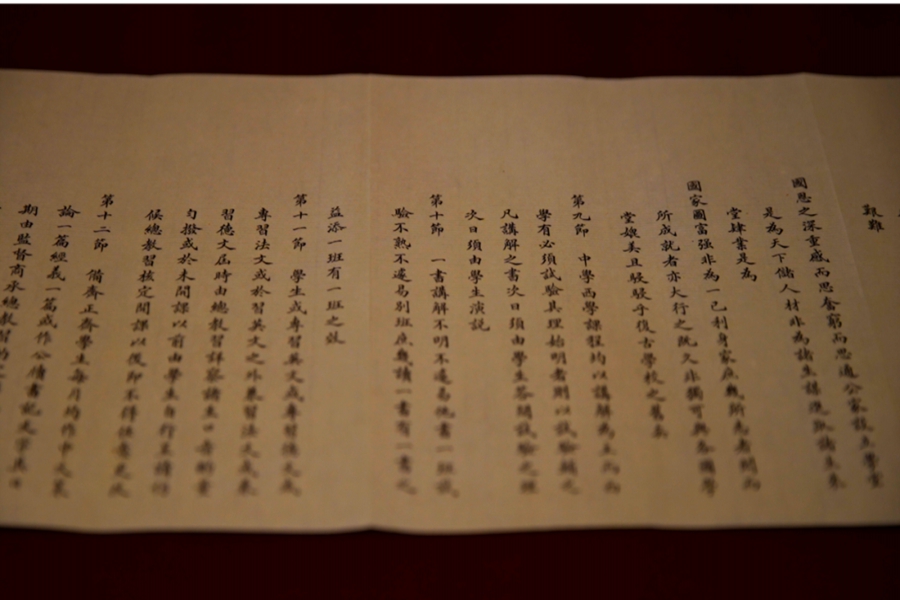 艱難
國恩之深重感而思奮窮而思通公家設立學堂
是為天下儲人材非為諸生謀
堂肄業是為
國家圖富强非為一己利身家庶幾所志者
所成就者亦大行之既久非獨可與各國學
堂媲美且駸駸乎復古學校之舊矣
第九節 中學西學課程均以講解為主
學有必須試驗其理始明者則以試驗
凡講解之書次日須由學生答問試驗之
次日須由學生演說
第十節 一書講解不明不遽易他書一班試
驗不熟不遽易別班庶幾讀一書有一書之
益添一班有一班之效
第十一節 學生或專習英文或專習德文或
專習法文或於習英文之外兼習法文或兼
習德文屆時由總教習詳察諸生口音
勻撥或於未開課以前由學生自行
候總教習核定開課以後即不得
第十二節 備齋正齋學生每月均作中文
論一篇經義一篇或作公牘書記文字
期由監督商承總教習